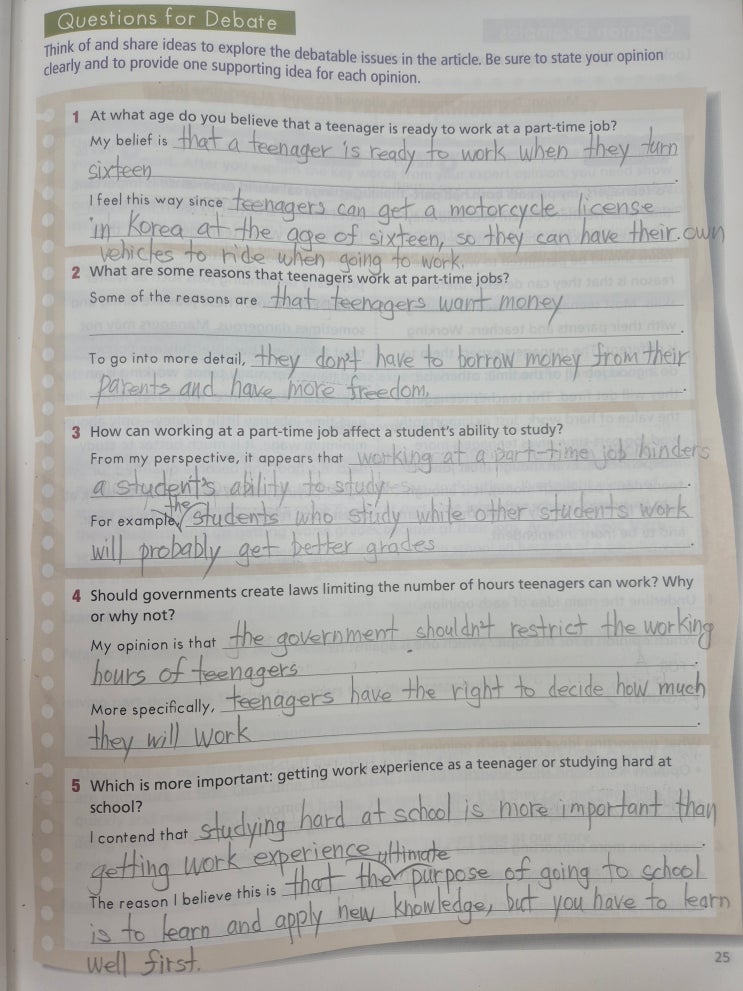 Questions for Debate
Think of and share ideas to explore the debatable issues in the article. Be sure to state your opinion
clearly and to provide one supporting idea for each opinion.
1 At what age do you believe that a teenager is ready to work at a part-time job?
My belief is that a teenager is ready to work when they turn
sixteen.
I feel this way since teenagers can get a motorcycle license
in Korea at the age of sixteen, so they can have their own
vehicles to ride when going to work.
2 What are some reasons that teenagers work at part-time jobs?
Some of the reasons are that teenagers want money
.
To go into more detail, they don't have to borrow money from their
parents and have more freedom.
3 How can working at a part-time job affect a student's ability to study?
From my perspective, it appears that working at a part-time job hinders
a student's ability to study.
the
For example, students who study while other students work
will probably get better grades.
4 Should governments create laws limiting the number of hours teenagers can work? Why
or why not?
My opinion is that the government shouldn't restrict the working
hours of teenagers.
More specifically, teenagers have the right to decide how much
they will work.
5 Which is more important: getting work experience as a teenager or studying hard at
school?
I contend that studying hard at school is more important than
getting work experience.
ultimate
The reason I believe this is that the purpose of going to school
is to learn and apply new knowledge, but you have to learn
well first.
25